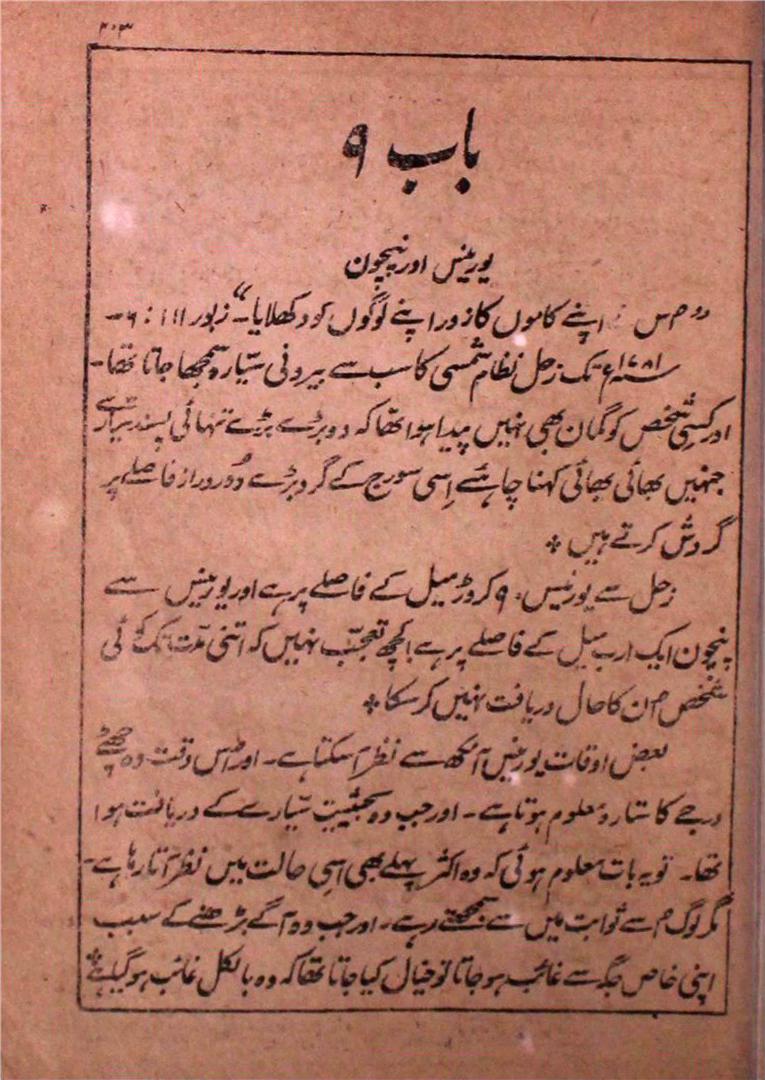 ۲۰۳
باب ۹
یورینس اور نیپچون
"اُس نے اپنے کاموں کا زور اپنے لوگوں کو دکھلایا۔" زبور ۱۱۱: ۶۔
۱۷۸۱ء تک زحل نظام شمسی کا سب سے بیرونی سیّارہ سمجھا جاتا تھا۔
اور کسی شخص کو گمان بھی نہیں پیدا ہوا تھا کہ دو بڑے بڑے تنہائی پسند سیّارے
جنہیں بھائی بھائی کہنا چاہئے اِسی سورج کے گرد بڑے دُور دراز فاصلے پر
گردش کرتے ہیں ٭
زحل سے یورینس ۹۰ کروڑ میل کے فاصلے پر ہے اور یورینس سے
نیپچون ایک ارب میل کے فاصلے پر ہے۔ کچھ تعجّب نہیں کہ اتنی مدّت تک کوئی
شخص اُن کا حال دریافت نہیں کر سکا ٭
بعض اوقات یورینس آنکھ سے نظر آ سکتا ہے۔ اور اُس وقت وہ چھٹے
درجے کا ستارہ معلوم ہوتا ہے۔ اور جب وہ بحیثیت سیّارے کے دریافت ہوا
تھا۔ تو یہ بات معلوم ہوئی کہ وہ اکثر پہلے بھی اسی حالت میں نظر آتا رہا ہے۔
مگر لوگ اُسے ثوابت میں سے سمجھتے رہے۔ اور جب وہ آگے بڑھنے کے سبب
اپنی خاص جگہ سے غائب ہو جاتا تو خیال کیا جاتا تھا کہ وہ بالکل غائب ہو گیا ہے ٭